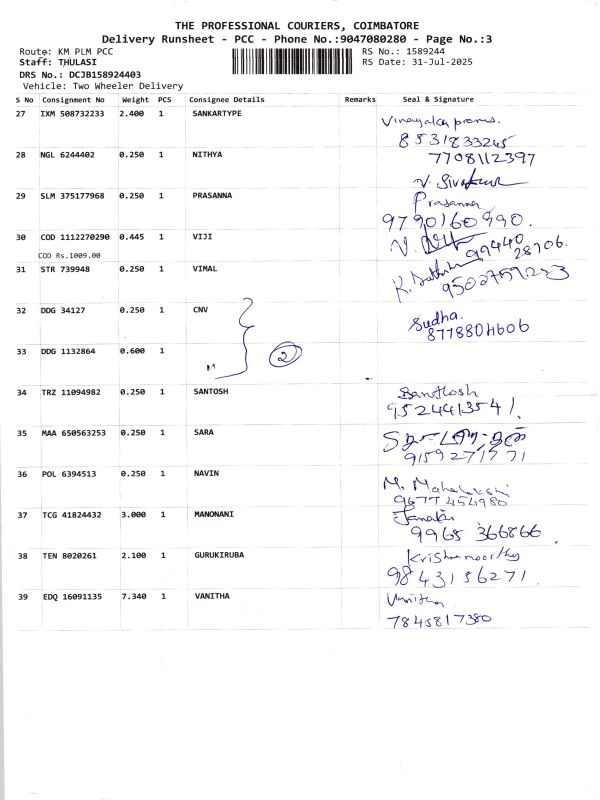 THE PROFESSIONAL COURIERS, COIMBATORE
Delivery Runsheet - PCC - Phone No.:9047080280 - Page No.:3
Route: KM PLM PCC RS No.: 1589244
Staff: THULASI RS Date: 31-Jul-2025
DRS No.: DCJB158924403
Vehicle: Two Wheeler Delivery
S No Consignment No Weight PCS Consignee Details Remarks Seal & Signature
27 IXM 508732233 2.400 1 SANKARTYPE
8531833245
28 NGL 6244402 0.250 1 NITHYA 7708112397
29 SLM 375177968 0.250 1 PRASANNA Prasanna
9790160990.
30 COD 1112270290 0.445 1 VIJI 99440
28706.
COD Rs.1009.00
31 STR 739948 0.250 1 VIMAL
32 DDG 34127 0.250 1 CNV Sudha.
33 DDG 1132864 0.600 1 2
34 TRZ 11094982 0.250 1 SANTOSH Santhosh
9524413541.
35 MAA 650563253 0.250 1 SARA
9159271771
36 POL 6394513 0.250 1 NAVIN M. Mahalakshmi
9677454980
37 TCG 41824432 3.000 1 MANONANI Janaki
9965 366866
38 TEN 8020261 2.100 1 GURUKIRUBA Krishnamoorthy
9843156271.
39 EDQ 16091135 7.340 1 VANITHA Vanitha
7845817380